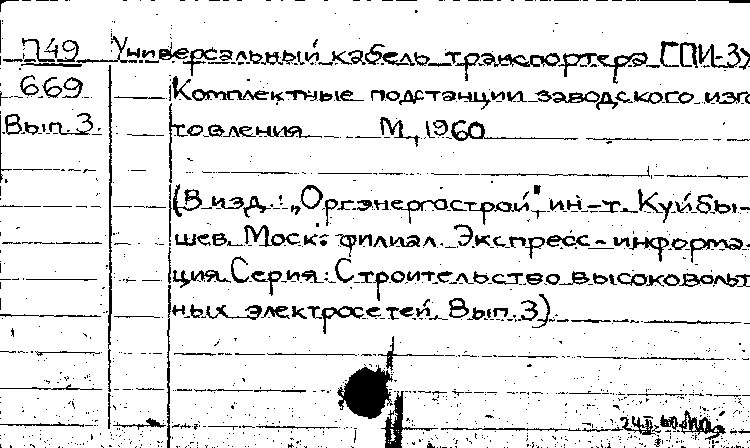 П49 Универсальный кабель транспортера СПИ-3)
669 Комплектные подстанции заводского изго
Вып. 3. товления М., 1960
(В изд.: „Оргэнергострой", ин-т. Куйбы-
шев. Моск. филиал. Экспресс-информа-
ция. Серия: Строительство высоковольт
ных электросетей. Вып. 3)